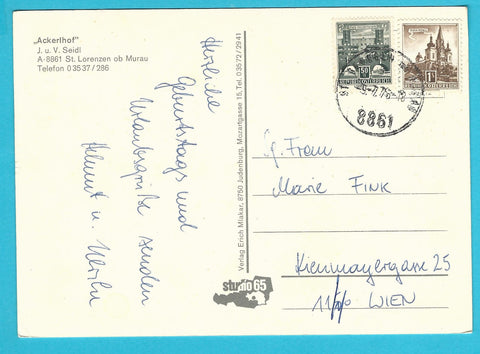 „Ackerlhof"
J. u. V. Seidl
A-8861 St. Lorenzen ob Murau
Telefon 0 35 37 / 286
Herzliche
Geburtstags und
Urlaubsgrüße senden
Helmut u.
Verlag Erich Mlakar, 8750 Judenburg, Mozartgasse 15, Tel. 0 35 72 / 29 41
studio 65
8861
REPUBLIK ÖSTERREICH
Fr. Frau
Marie FINK
Kienmayergasse 25
WIEN